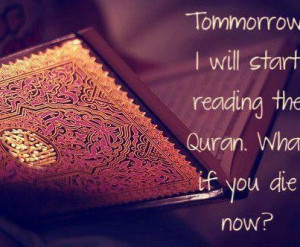 Tommorrow
I will start
reading the
Quran. Wha
if you die
now?